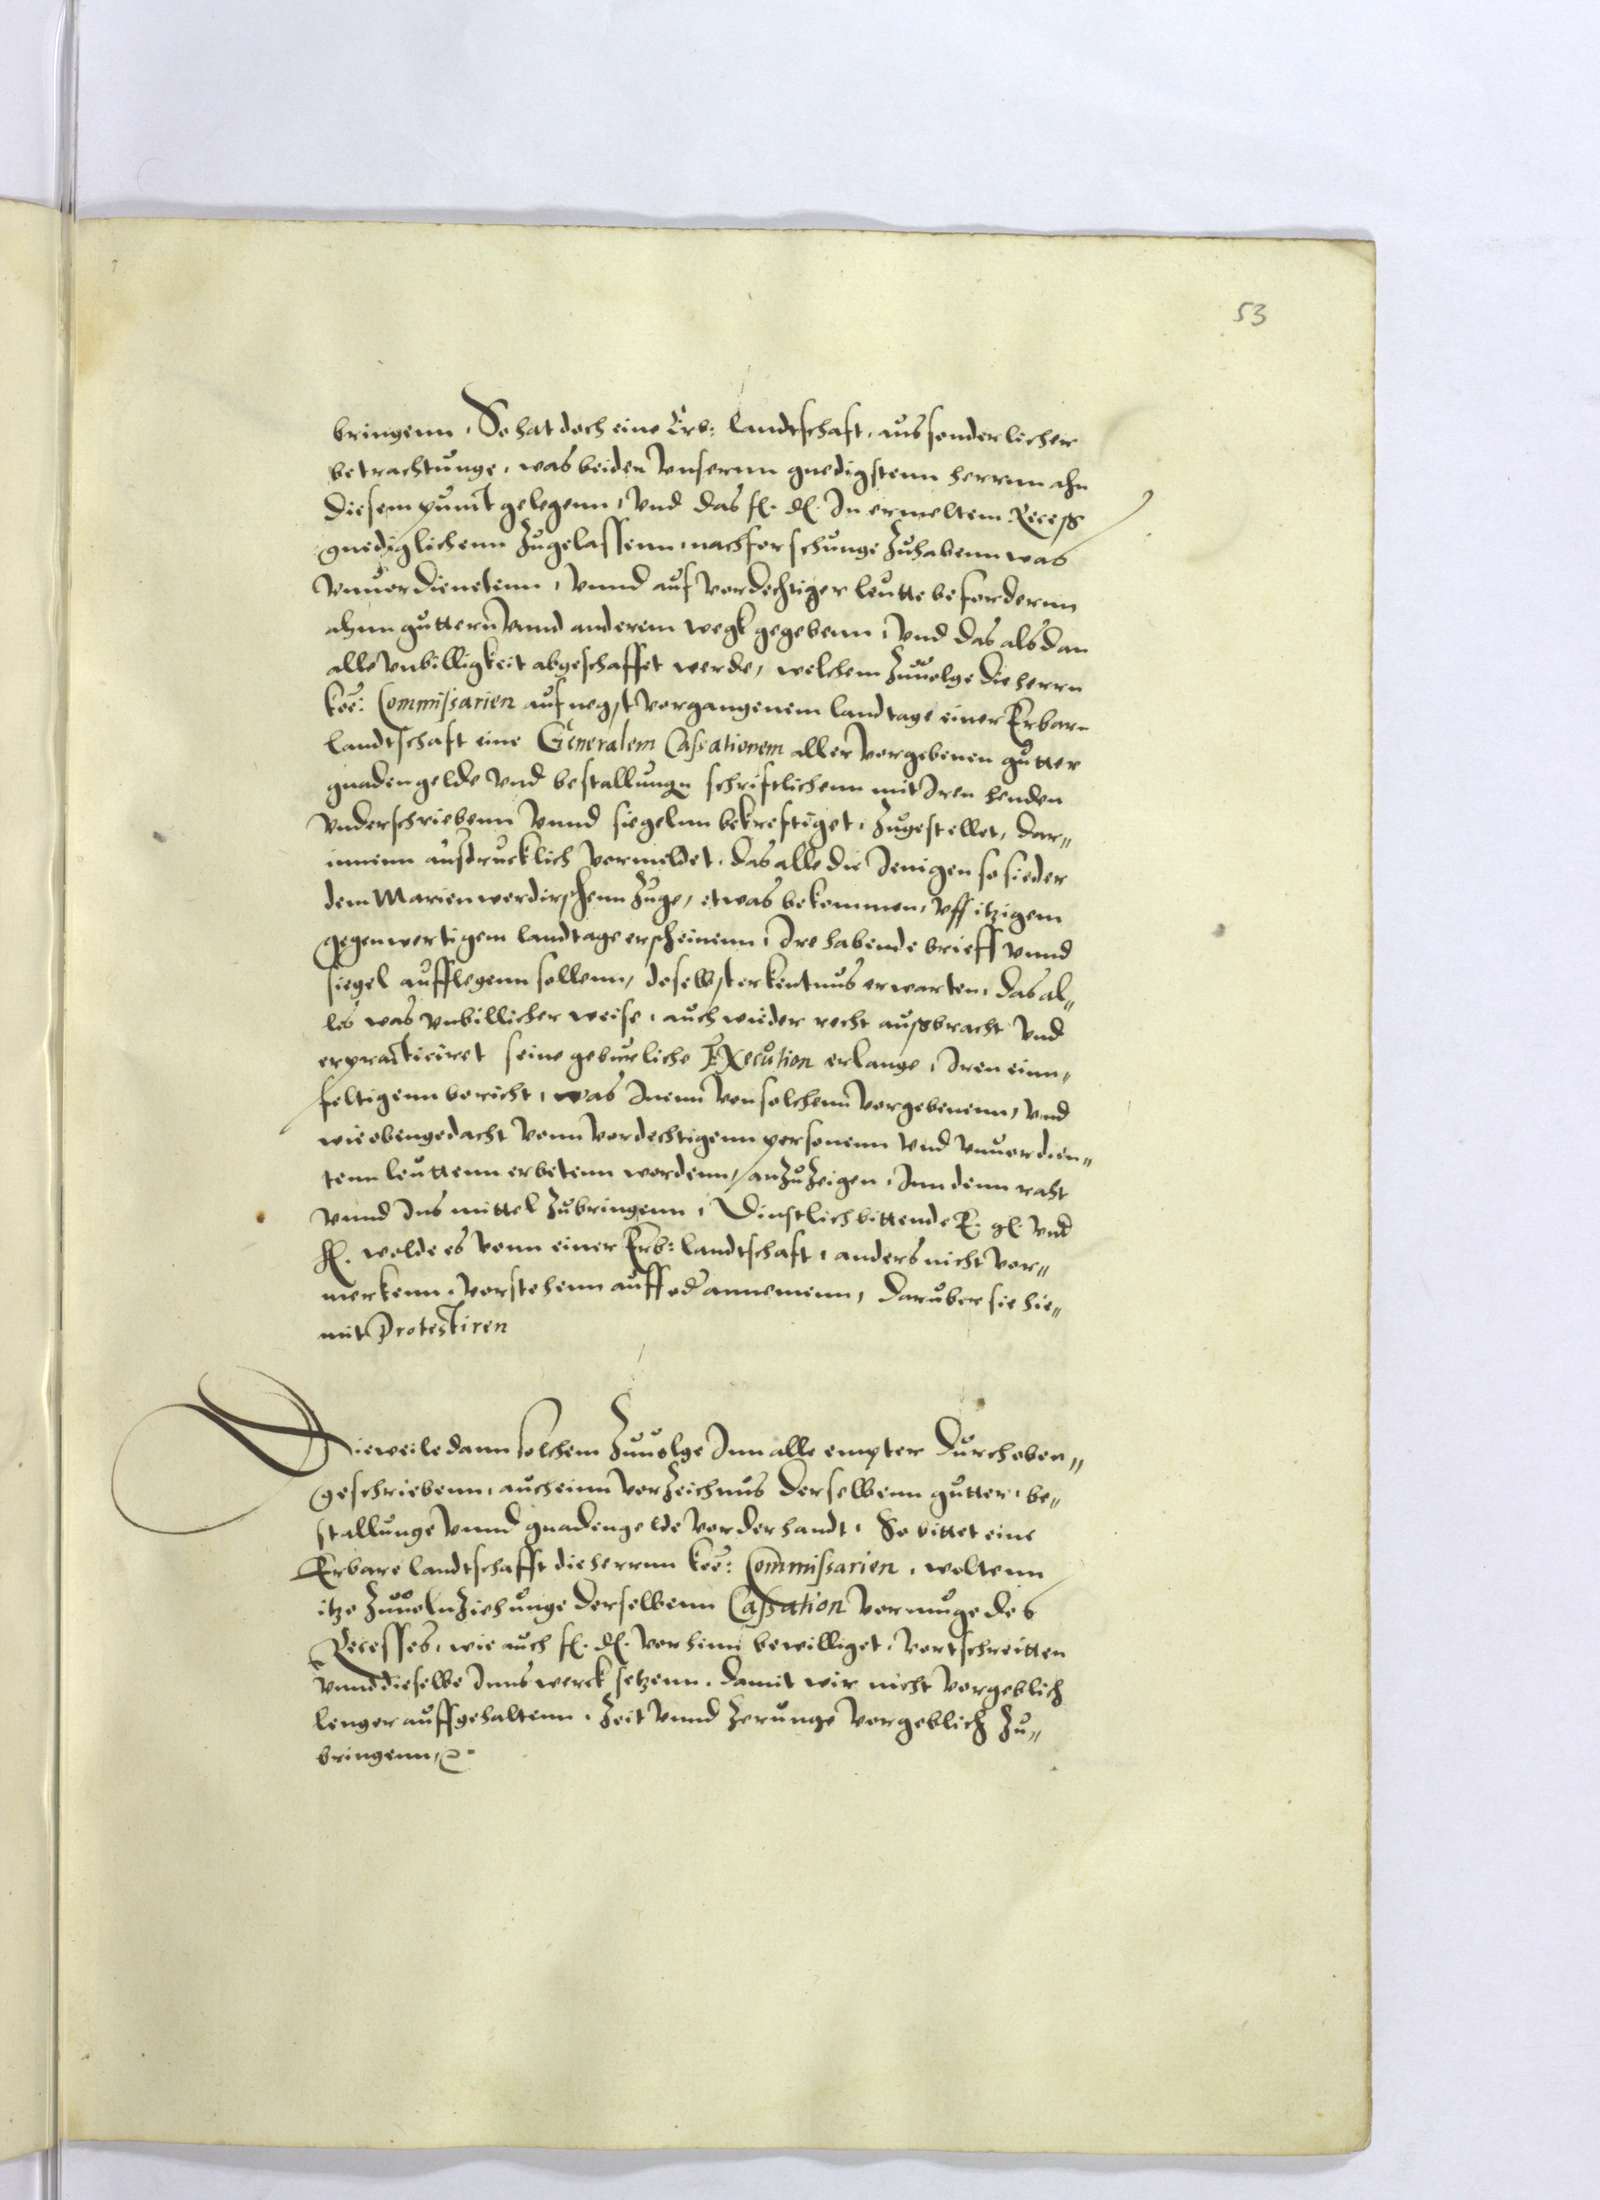 53
bringenn, So hat doch eine Erb: landtschaft, aus sonderlicher
betrachtunge, was beiden Unsernn gnedigstenn herrnn ahn
diesem punct gelegenn, Und das f. d. In ermeltem Recess
gnediglichenn zugelassenn, nachforschunge zuhabenn was
Unuerdienetenn, Unnd auf Verdechtiger leutte befordernn
ahnn guttern Unnd anderem wegk gegebenn, Und das alsdan
alle Unbilligkeit abgeschaffet werde, welchem zuuolge die herrn
koe: Commissarien auf negst Vorgangenem landtage einer Erbarn
landtschaft eine Generalem Cassationem aller Vorgebenen gutter
gnadengelde Und bestallungn schriftlichenn mit Iren henden
Underschriebenn Unnd siegelnn bekreftiget, zugestellet, dar„
innenn ausdrucklich Vormeldet, das alle die Jenigen so sieder
dem Marienwerdirschenn zuge, etwas bekommen, Uff itzigem
gegenwertigem landtage erscheinenn, Ire habende brieff Unnd
siegel aufflegenn sollenn, doselbst erkentnus erwarten, das al„
les was Unbillicher weise, auch wieder recht aussbracht Und
erpracticiret seine geburliche Execution erlange, Iren einn„
feltigenn bericht, was Inenn Von solchenn Vorgebenenn, Und
wie obengedacht Vonn Vordechtigenn personenn Und Unuerdien„
tenn leuttenn erbetenn wordenn, anzuzeigen, Inn denn raht
Unnd Ins mittel zubringenn, Dinstlich bittende E. gl. Und
h. wolde es Vonn einer Erb: landtschaft, anders nicht Vor„
merkenn, Vorstehenn auff od annemenn, daruber sie hie„
mit Protestiren
Dieweile dann solchem zuuolge Inn alle empter durch oben„
geschriebenn, auch einn Vorzeichnus derselbenn gutter, be„
stallunge Unnd gnadengelde Vorderhandt, So bittet eine
Erbare landtschafft die herrnn koe: Commissarien, woltenn
itzo zuuolnziehunge derselbenn Cassation Vormuge des
Recesses, wie auch f. d. Vorhinn bewilliget, Vortschreitten
Unnd dieselbe Inns werck setzenn, damit wir nicht Vorgeblich
lenger auffgehaltenn, Zeit Unnd Zerunge Vorgeblich zu„
bringenn,